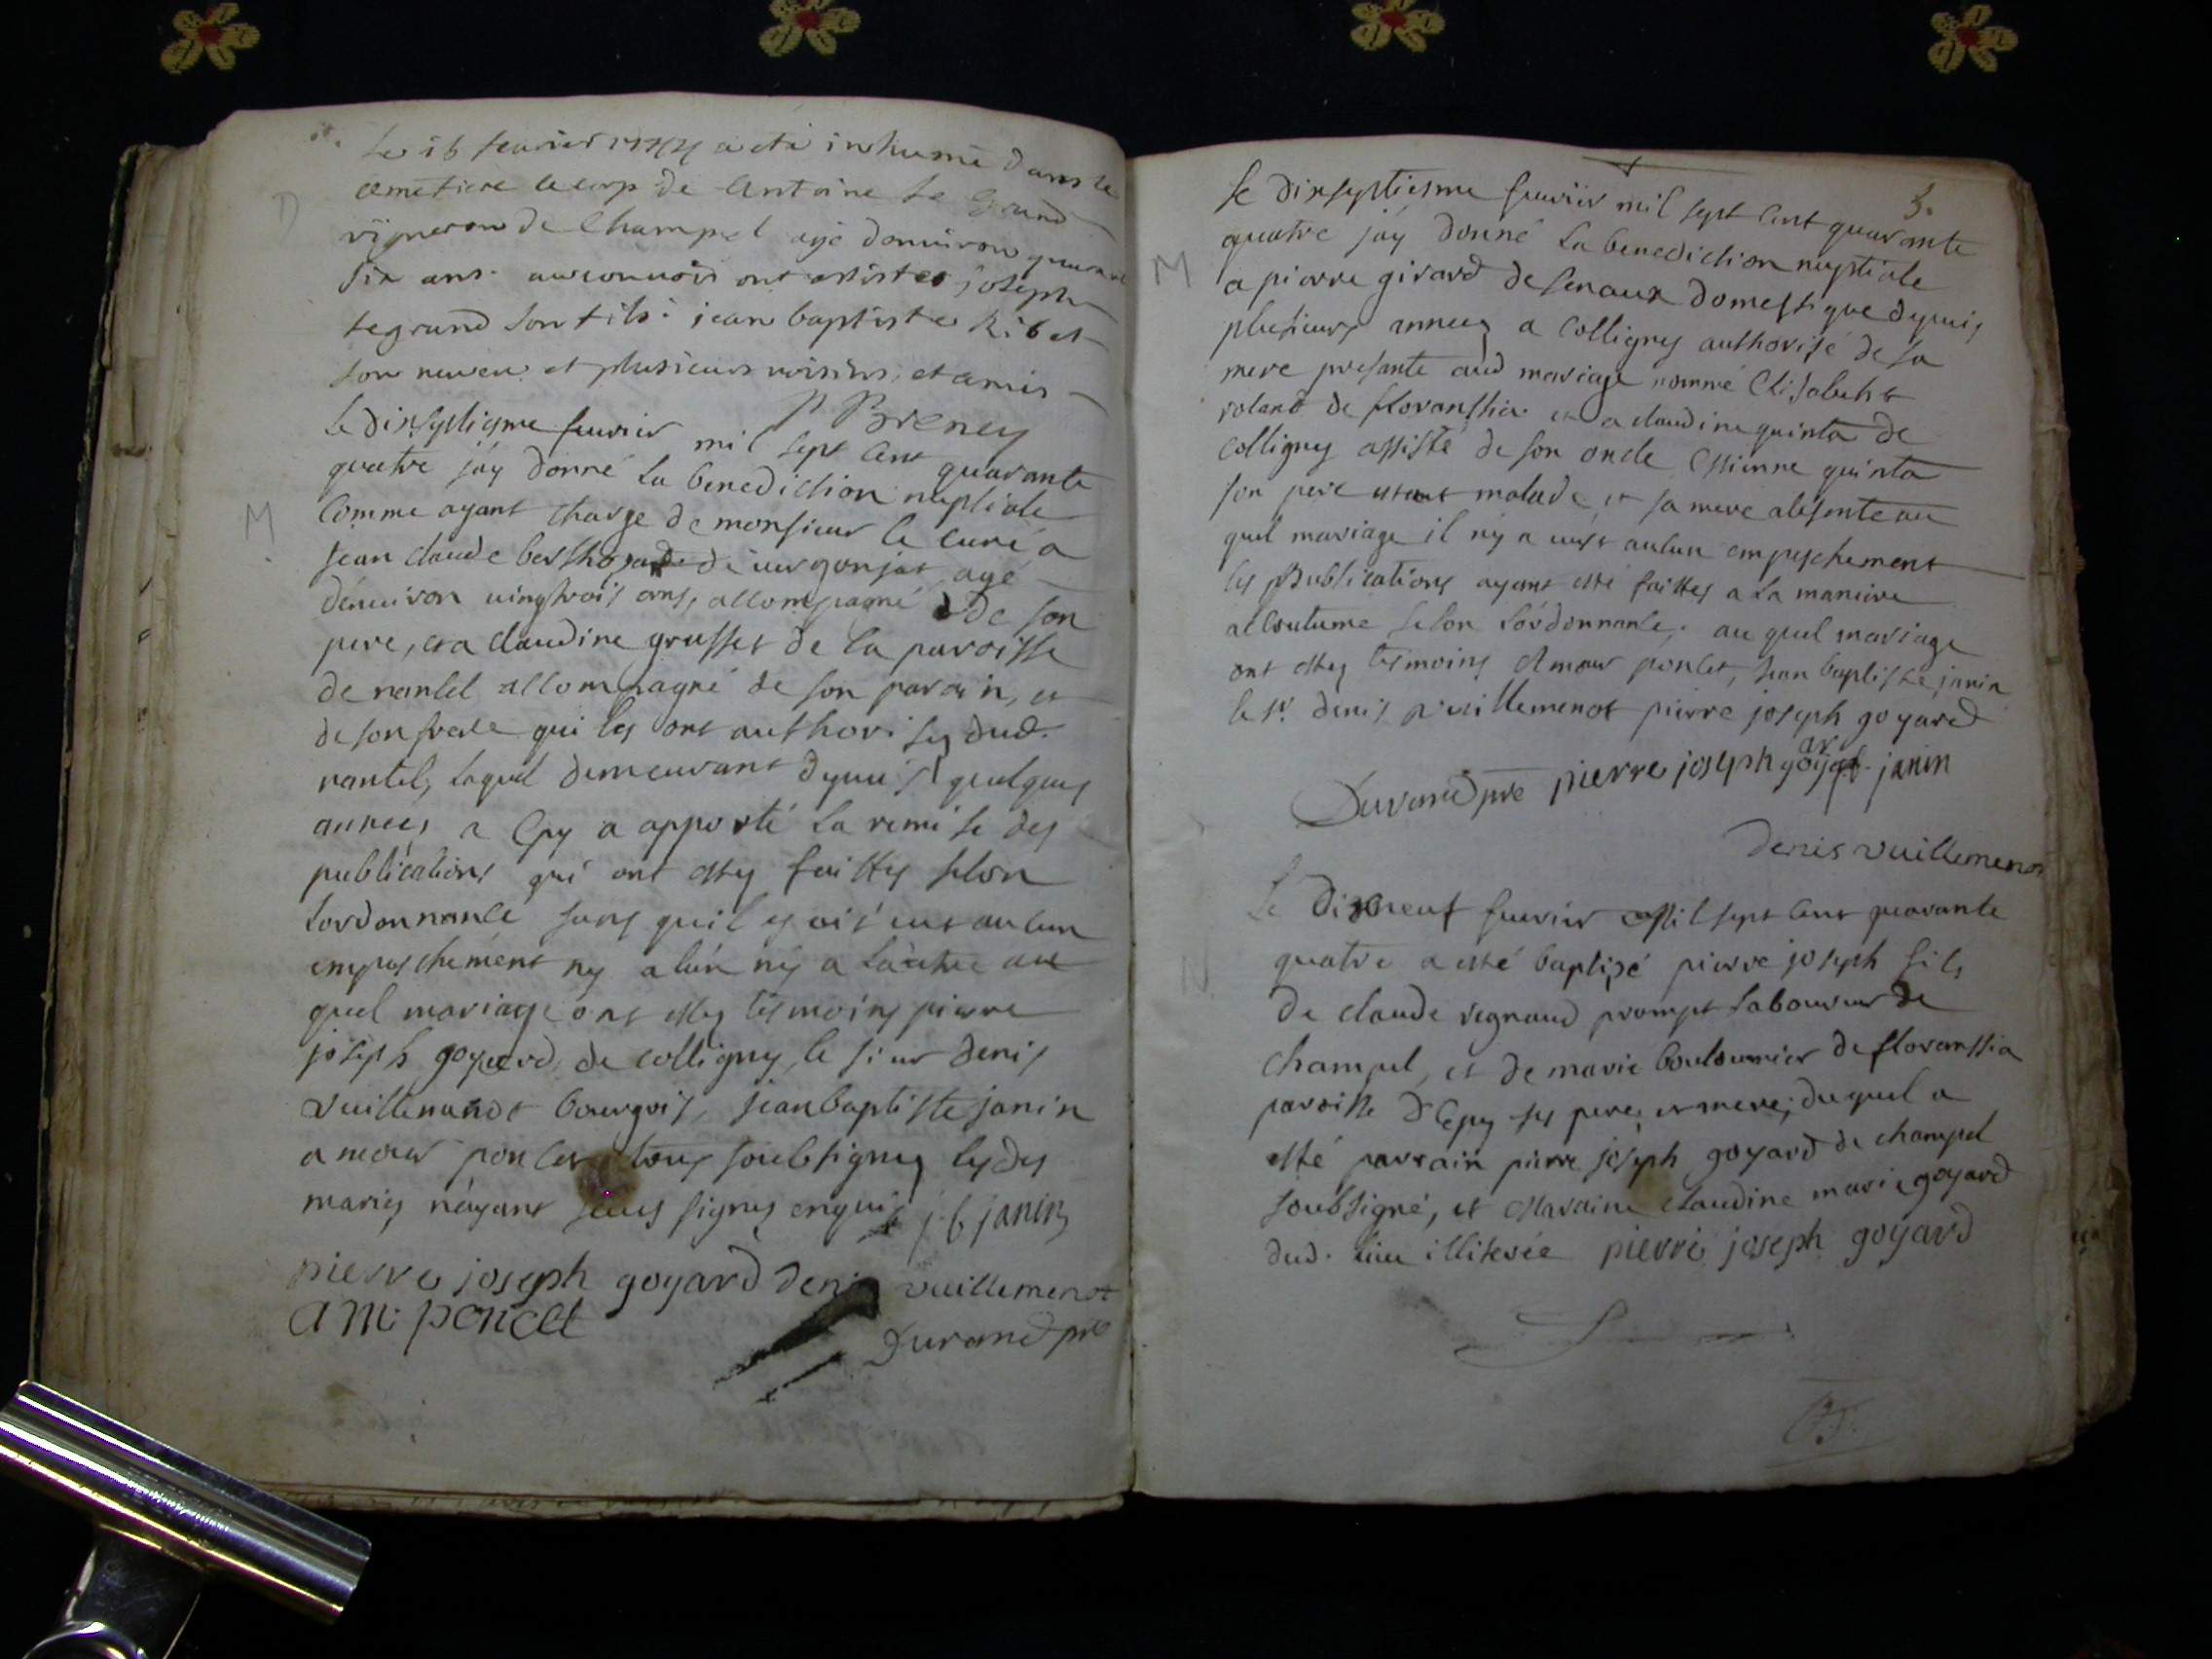 Le 16 feurier 1744 a été inhumé dans le
D
cemetiere le corp de Antoine Le Grand
vigneron de Champel agé denuiron
six ans. au conuois ont assistes joseph
legrand son fils. jean baptiste Ribet
son neveu et plusieurs voisins, et amis
P Breney
Le dixseptiesme feurier mil sept cent quarante
quatre jáy donné La benediction nuptiale
M
Comme ayant charge de monsieur le curé a
Jean claude de uergonjat, agé
dénuiron uingtrois ans, accompagné de son
pere, et a claudine grusset de La paroisse
de nantel accompagné de son parain, et
de son frere qui les ont authorises dud.
nantel, Laquel demeurant depuis quelques
annees a Epy a apporté La remise des
publications qui ont estes faittes selon
Lordonnance sans quil y ait eut aulcun
empeschement ny a lún ny a Láutre au
quel mariage ont estes tesmoins pierre
joseph goyard de colligny, le sieur denis
vuillemenot bourgois, jean baptiste janin
amour poncet tous soubsignes lesdts
maries náyant signes enquis j b janin
pierre joseph goyard denis vuillemenot
am: poncet
Durand pre
3.
Le dixseptiesme feurier mil sept cent quarante
quatre jáy donné La benediction nuptiale
M
a pierre girard de senaux domestique depuis
plusieurs annees a Colligny authorisé de sa
mere presante aud mariage nommé Elisabeht
roland de floranthia et a claudine quinta de
Colligny assisté de son oncle Estienne quinta
son pere estant malade et sa mere absente au
quel mariage il ny a eust aulcun empeschement
les Publications ayant esté faittes a La maniere
accoutume selon Lórdonnance. au quel mariage
ont estes tesmoins Amour poncet, jean baptiste janin
le sr. denis vuillemenot pierre joseph goyard
Durand pre pierre joseph goyard janin
denis vuillemenot
Le dixneuf feurier Mil sept cent quarante
quatre a esté baptisé pierre joseph fils
N
de claude regnaud prompt Laboureur de
champel, et de marie bouldumier de floranthia
paroisse d'Epy ses pere et mere; duquel a
esté parrain pierre joseph goyard de champel
soubsigné, et Maraine claudine marie goyard
dud. lieu illiterée pierre joseph goyard